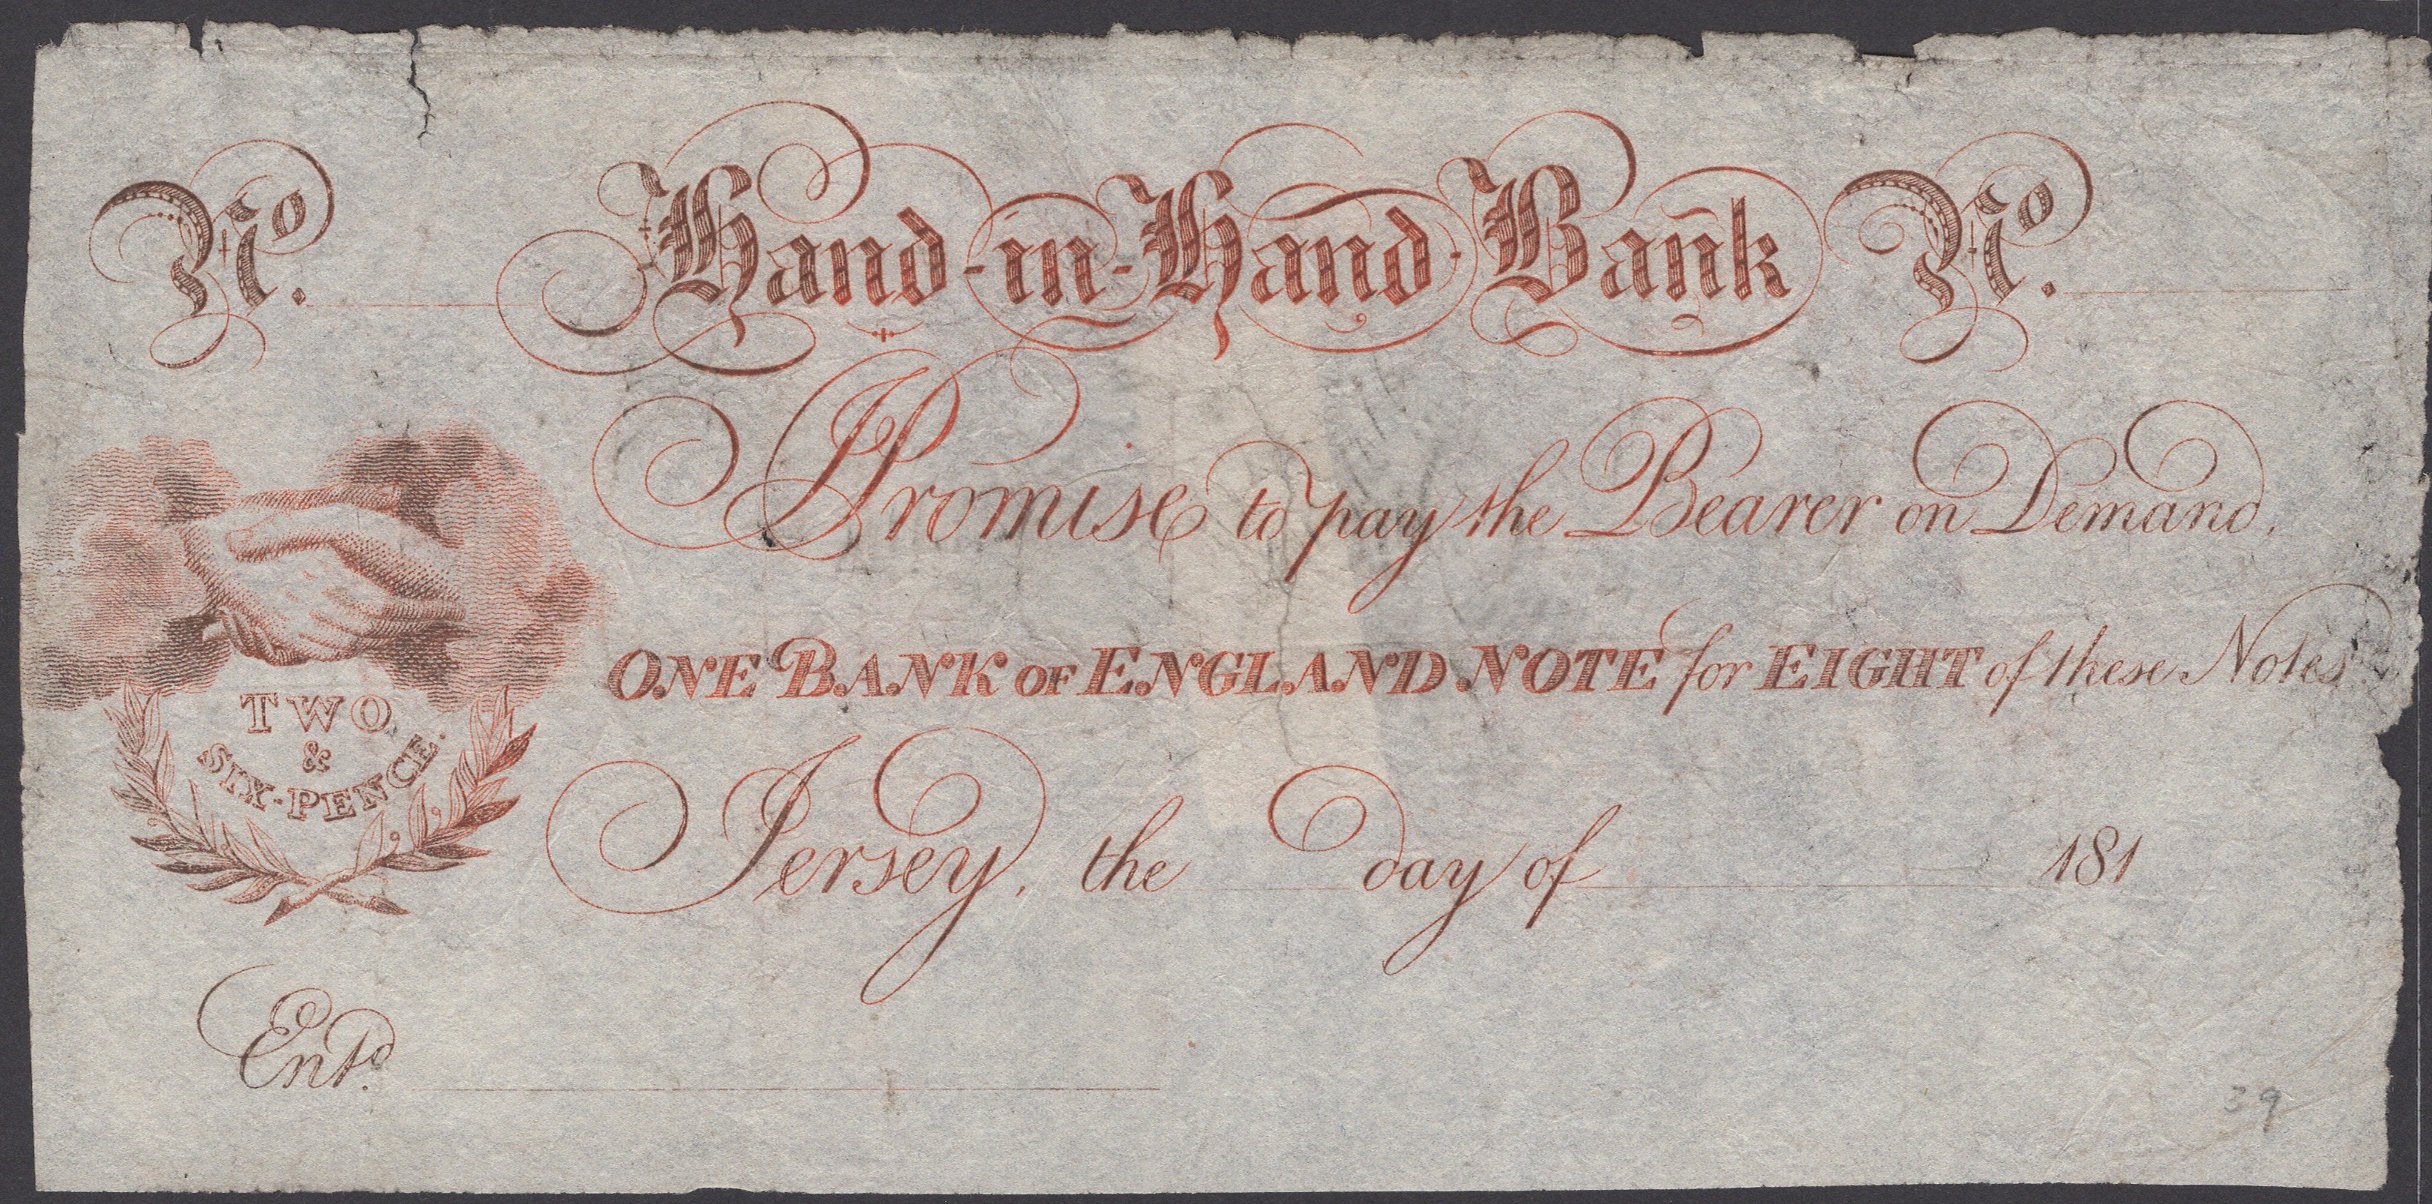 No. Hand-in-Hand-Bank No.
I Promise to pay the Bearer on Demand,
ONE BANK OF ENGLAND NOTE for EIGHT of these Notes
TWO
&
SIX-PENCE.
Jersey, the day of 181
Entd.
39